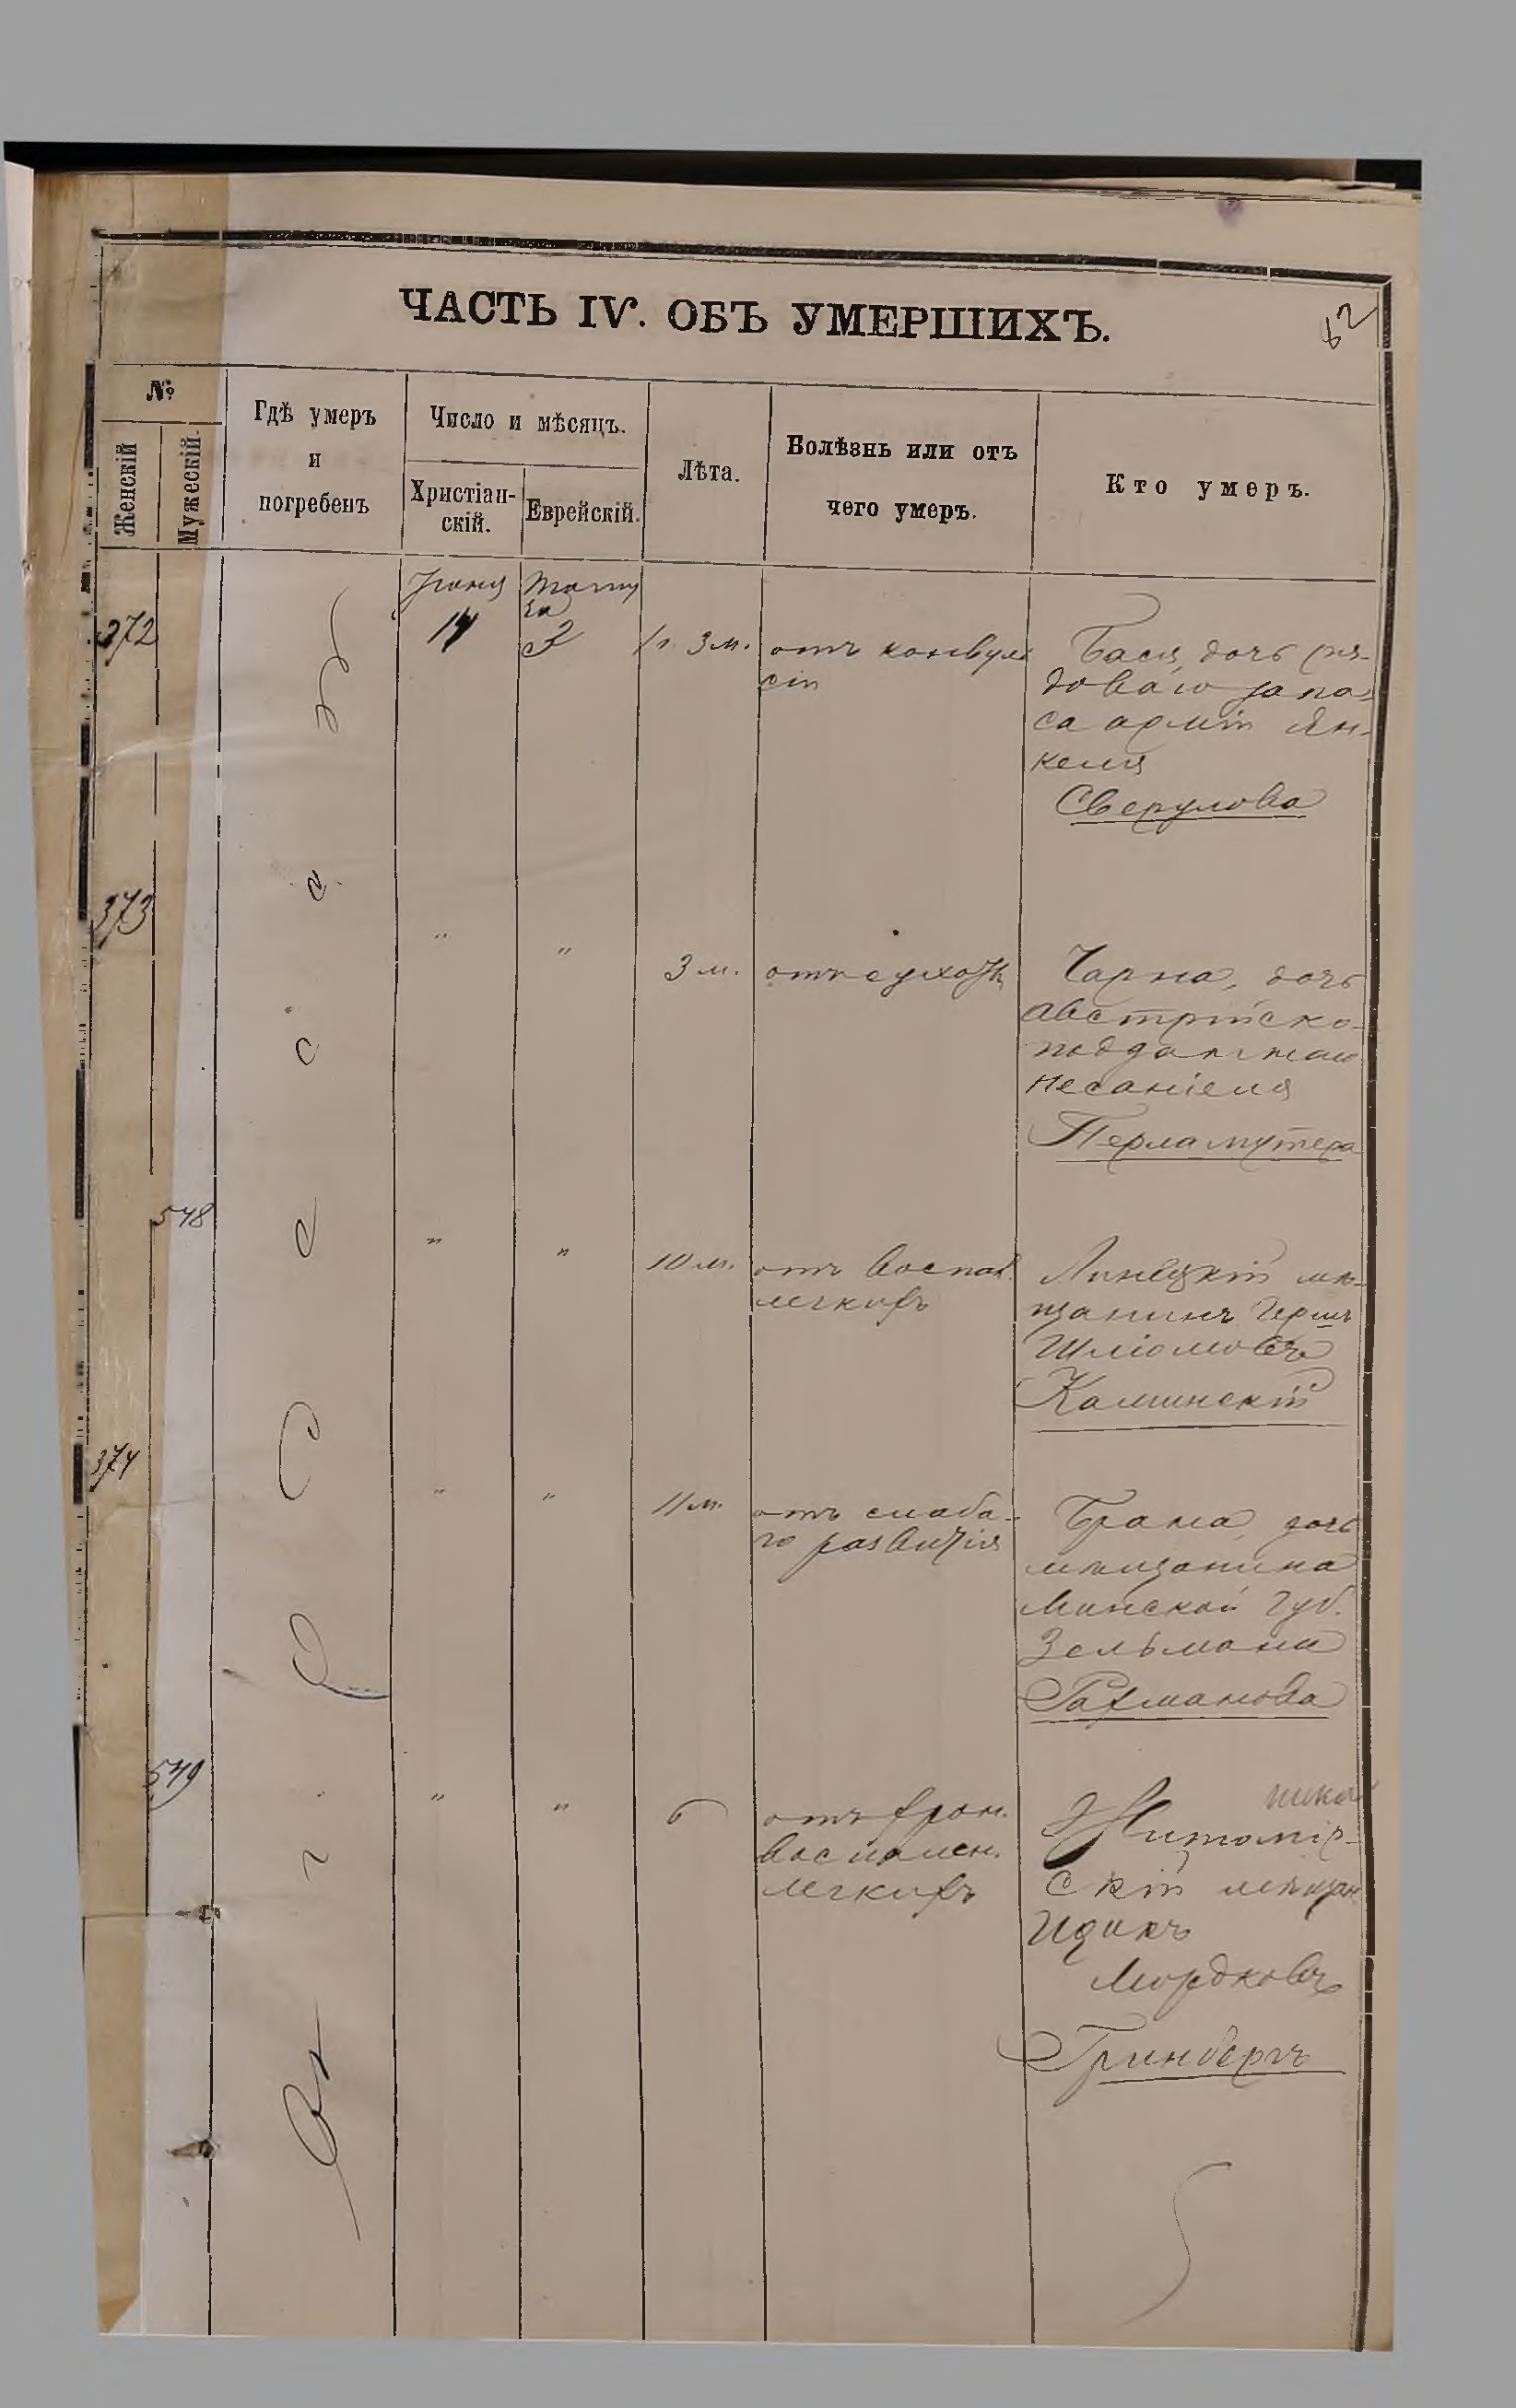 62
ЧАСТЬ IV. ОБЪ УМЕРШИХЪ.
№
Женскій
Мужескій.
Гдѣ умеръ
и
погребенъ
Число и мѣсяцъ.
Христіан-
скій.
Еврейскій.
Лѣта.
Болѣзнь или отъ
чего умеръ.
Кто умеръ.
372
Іюня
14
Таму
за
3
1 г. 3 м.
отъ конвуль
сіи
Бася, дочь ря-
доваго запа-
са арміи Ян-
келя
Сверулова
373
"
"
3 м.
отъ сухот.
Чарна, дочь
австрійско-
подданнаго
Несаніеля
Перламутера
548
"
"
10 м.
отъ воспал.
легкихъ
Линецкій мѣ-
щанинъ Гершъ
Шліомовъ
Каминскій
374
"
"
11 м.
отъ слаба-
го развитія
Брама, дочь
мѣщанина
Минской губ.
Зельмана
Рахманова
549
"
"
6
отъ хрон.
воспален.
легкихъ
Житомір-
скій мѣщан.
Ицикъ
Мордковъ
Гринбергъ